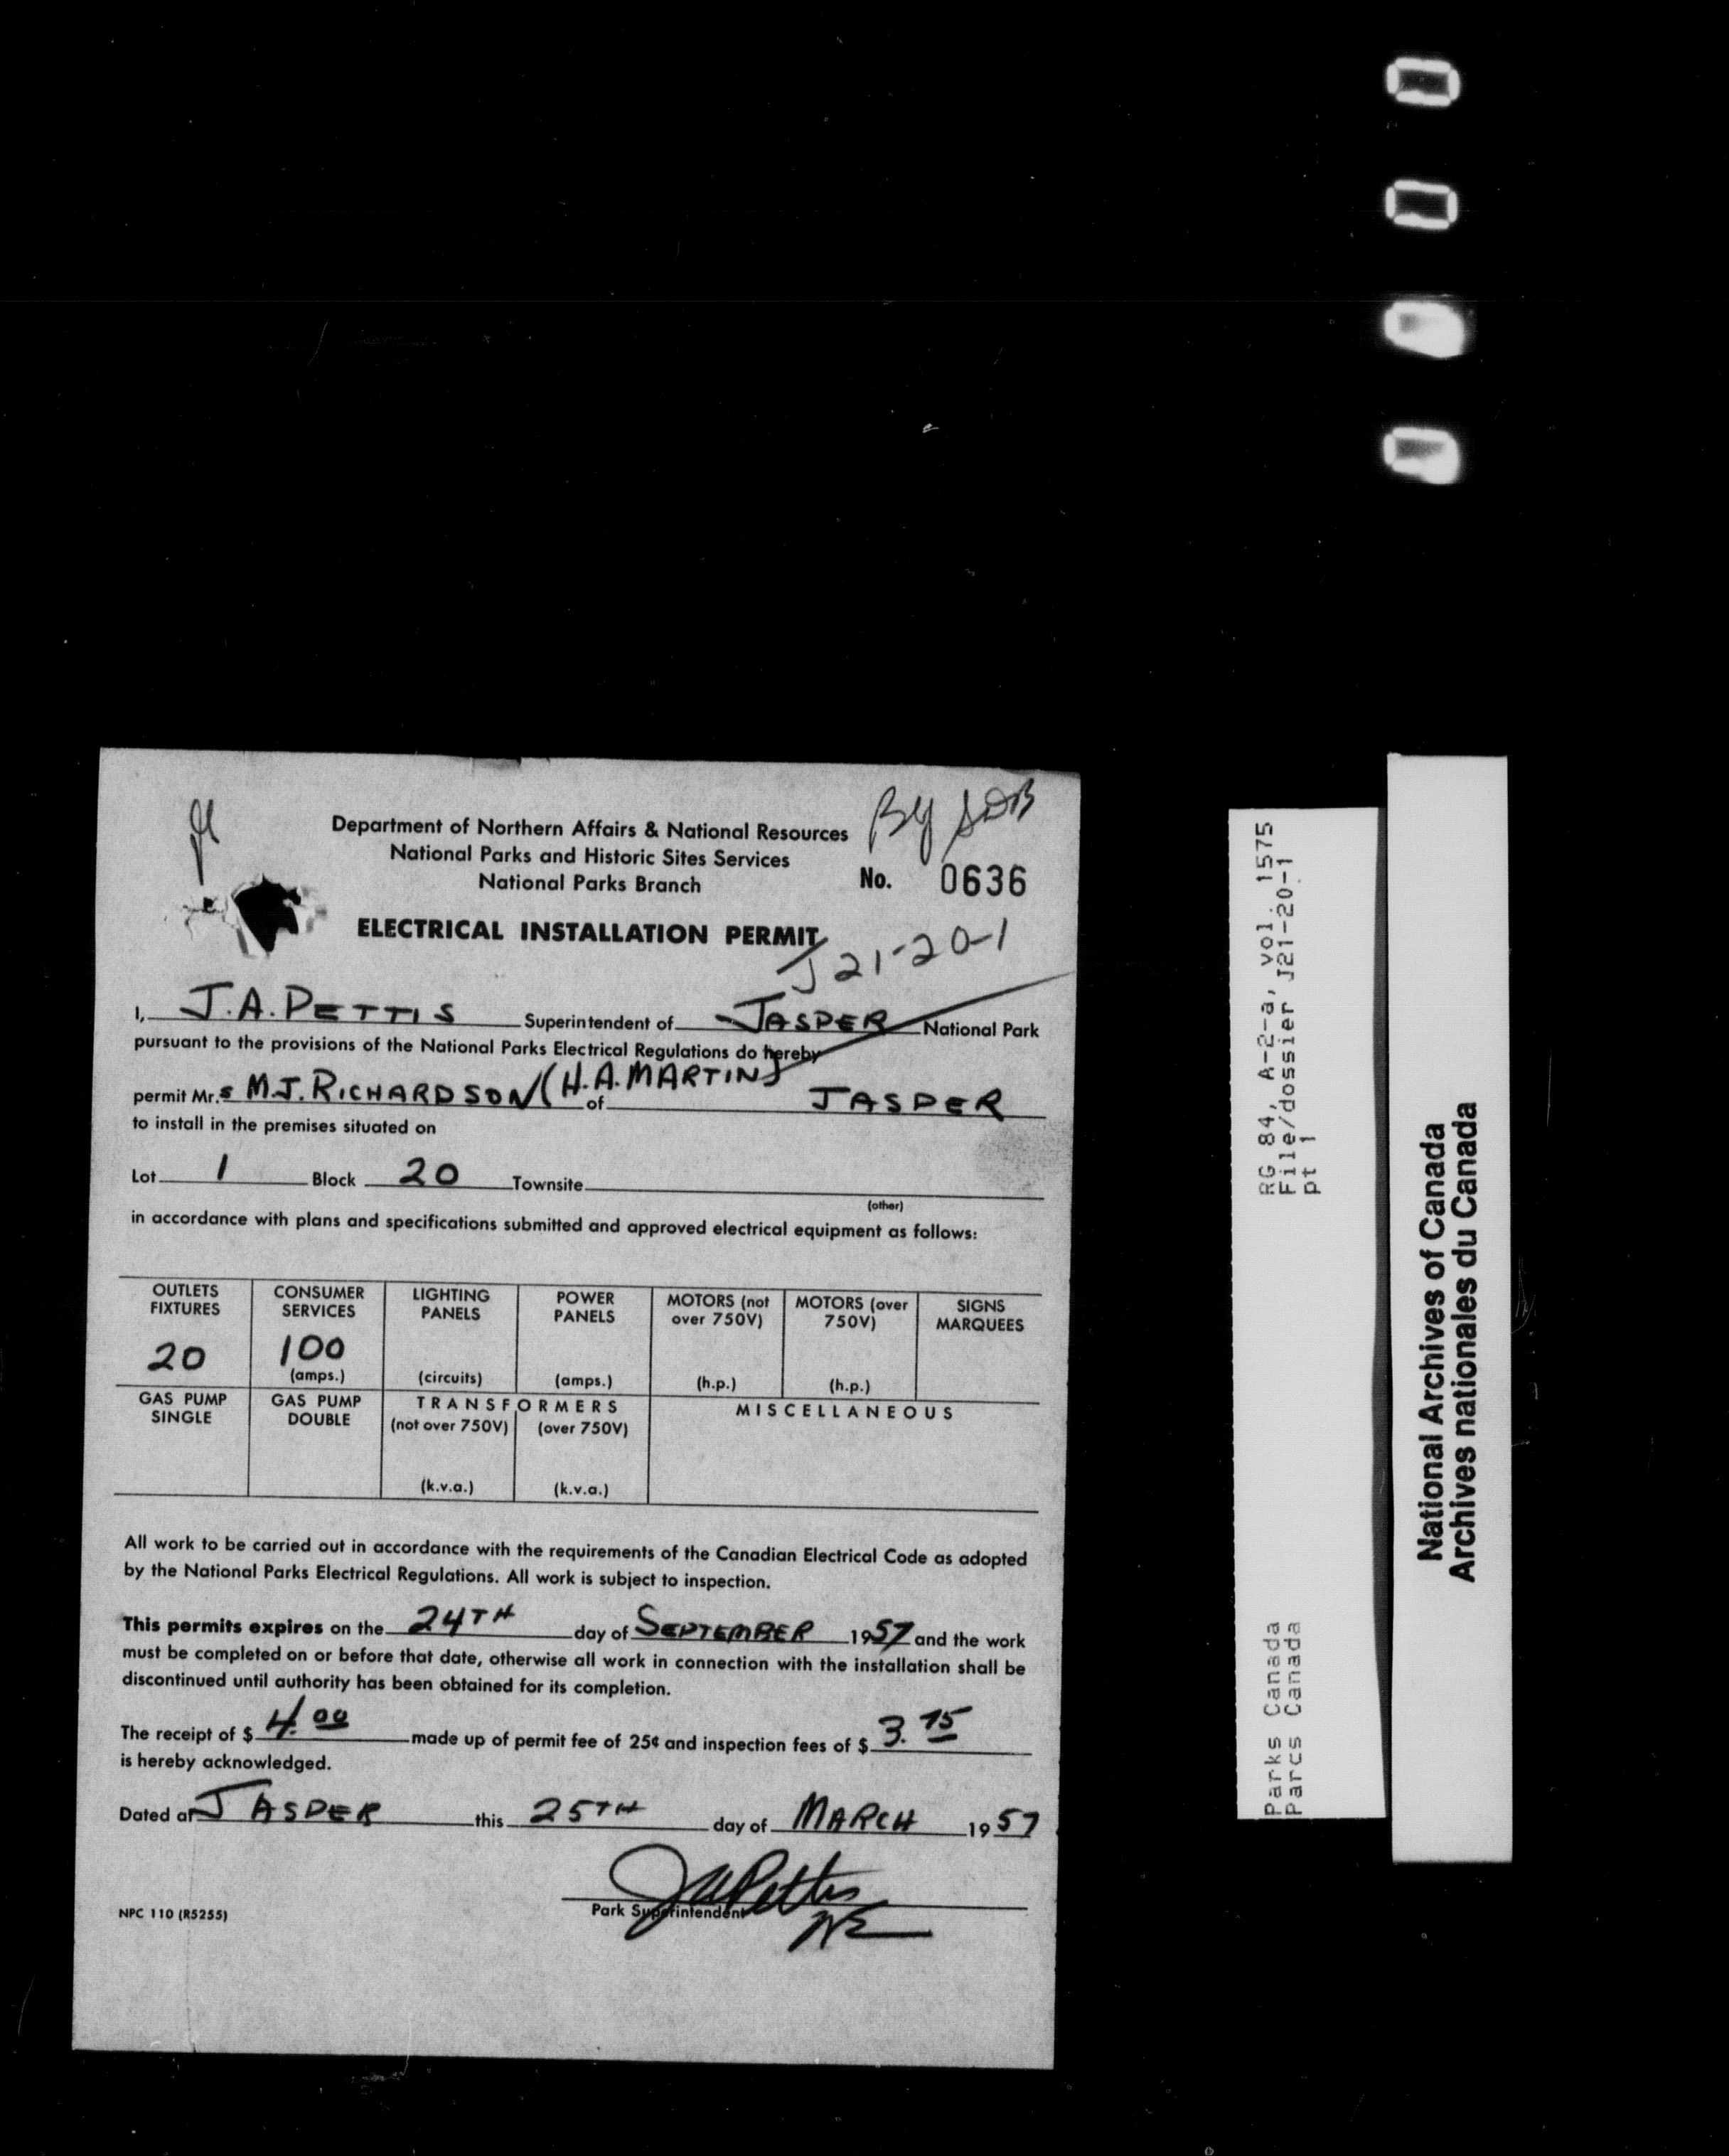 By SDB
Department of Northern Affairs & National Resources
National Parks and Historic Sites Services
National Parks Branch
No. 0636
ELECTRICAL INSTALLATION PERMIT
J21-20-1
I, J.A. PETTIS Superintendent of JASPER National Park
pursuant to the provisions of the National Parks Electrical Regulations do hereby
permit Mr.s M.J. RICHARDSON (H.A. MARTIN) of JASPER
to install in the premises situated on
Lot 1 Block 20 Townsite
(other)
in accordance with plans and specifications submitted and approved electrical equipment as follows:
OUTLETS FIXTURES 20
CONSUMER SERVICES 100 (amps.)
LIGHTING PANELS (circuits)
POWER PANELS (amps.)
MOTORS (not over 750V) (h.p.)
MOTORS (over 750V) (h.p.)
SIGNS MARQUEES
GAS PUMP SINGLE
GAS PUMP DOUBLE
TRANSFORMERS
(not over 750V) (k.v.a.)
(over 750V) (k.v.a.)
MISCELLANEOUS
All work to be carried out in accordance with the requirements of the Canadian Electrical Code as adopted
by the National Parks Electrical Regulations. All work is subject to inspection.
This permits expires on the 24TH day of SEPTEMBER 1957 and the work
must be completed on or before that date, otherwise all work in connection with the installation shall be
discontinued until authority has been obtained for its completion.
The receipt of $ 4.00 made up of permit fee of 25¢ and inspection fees of $ 3.75
is hereby acknowledged.
Dated at JASPER this 25TH day of MARCH 1957
JAPettis
Park Superintendent
NPC 110 (R5255)
RG 84, A-2-a, vol. 1575
File/dossier J21-20-1
pt 1
Parks Canada
Parcs Canada
National Archives of Canada
Archives nationales du Canada